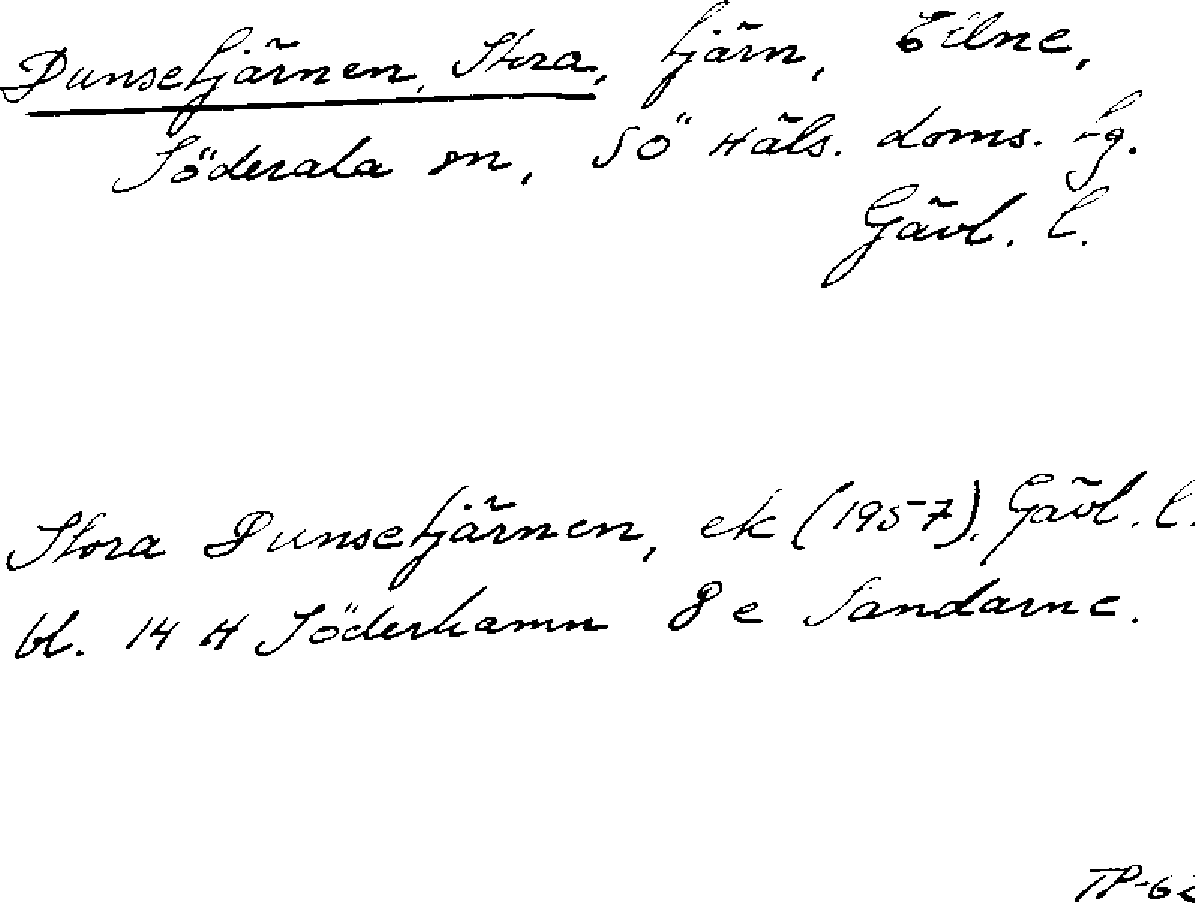 Dunsetjärnen, Stora, tjärn, Eilne,
Söderala sn, SÖ Häls. doms. lg.
Gävl. l.
Stora Dunsetjärnen, ek (1957), Gävl. l.
bl. 14 H Söderhamn 8 e Sandarne.
TP-62